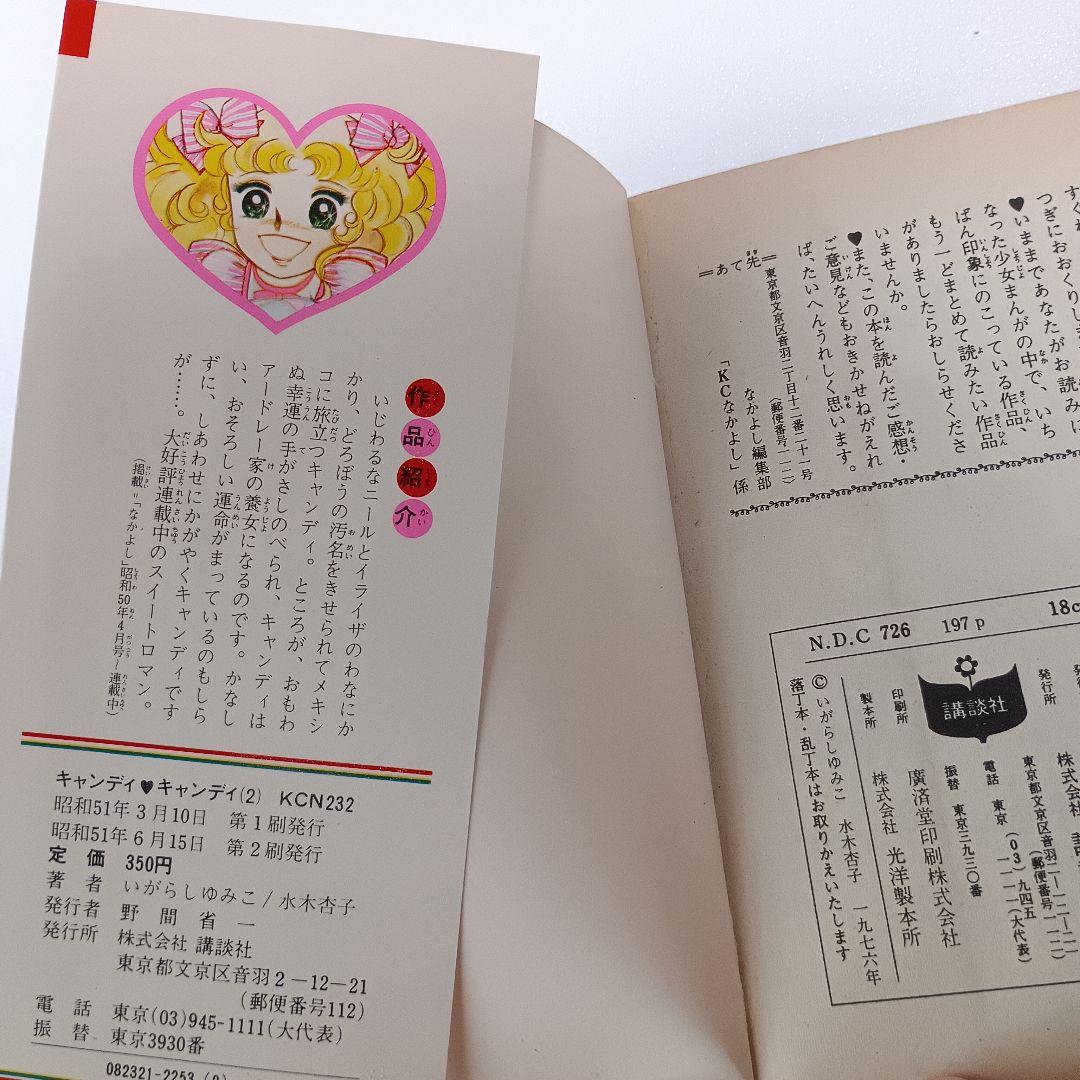 作品紹介
いじわるなニールとイライザのわなにか
かり、どろぼうの汚名をきせられてメキシ
コに旅立つキャンディ。ところが、おもわ
ぬ幸運の手がさしのべられ、キャンディは
アードレー家の養女になるのです。かなし
い、おそろしい運命がまっているのもしら
ずに、しあわせにかがやくキャンディです
が……。大好評連載中のスイートロマン。
(掲載=「なかよし」昭和50年4月号〜連載中)
キャンディ♥キャンディ(2) KCN232
昭和51年3月10日 第1刷発行
昭和51年6月15日 第2刷発行
定価 350円
著者 いがらしゆみこ/水木杏子
発行者 野間省一
発行所 株式会社 講談社
東京都文京区音羽2-12-21
(郵便番号112)
電話 東京(03)945-1111(大代表)
振替 東京3930番
082321-2253
つぎにおおくりし
♥いままであなたがお読みに
なった少女まんがの中で、いち
ばん印象にのこっている作品、
もう一どまとめて読みたい作品
がありましたらおしらせくださ
いませんか。
♥また、この本を読んだご感想・
ご意見などもおきかせねがえれ
ば、たいへんうれしく思います。
=あて先=
東京都文京区音羽二丁目十二番二十一号
(郵便番号一一二)
なかよし編集部
「KCなかよし」係
N.D.C 726 197p 18c
講談社
発行所
株式会社
東京都文京区音羽二-一二-二一
(郵便番号一一二)
電話 東京(03)九四五
一一一一(大代表)
振替 東京三九三〇番
印刷所 廣済堂印刷株式会社
製本所 株式会社 光洋製本所
©いがらしゆみこ 水木杏子 一九七六年
落丁本・乱丁本はお取りかえいたします